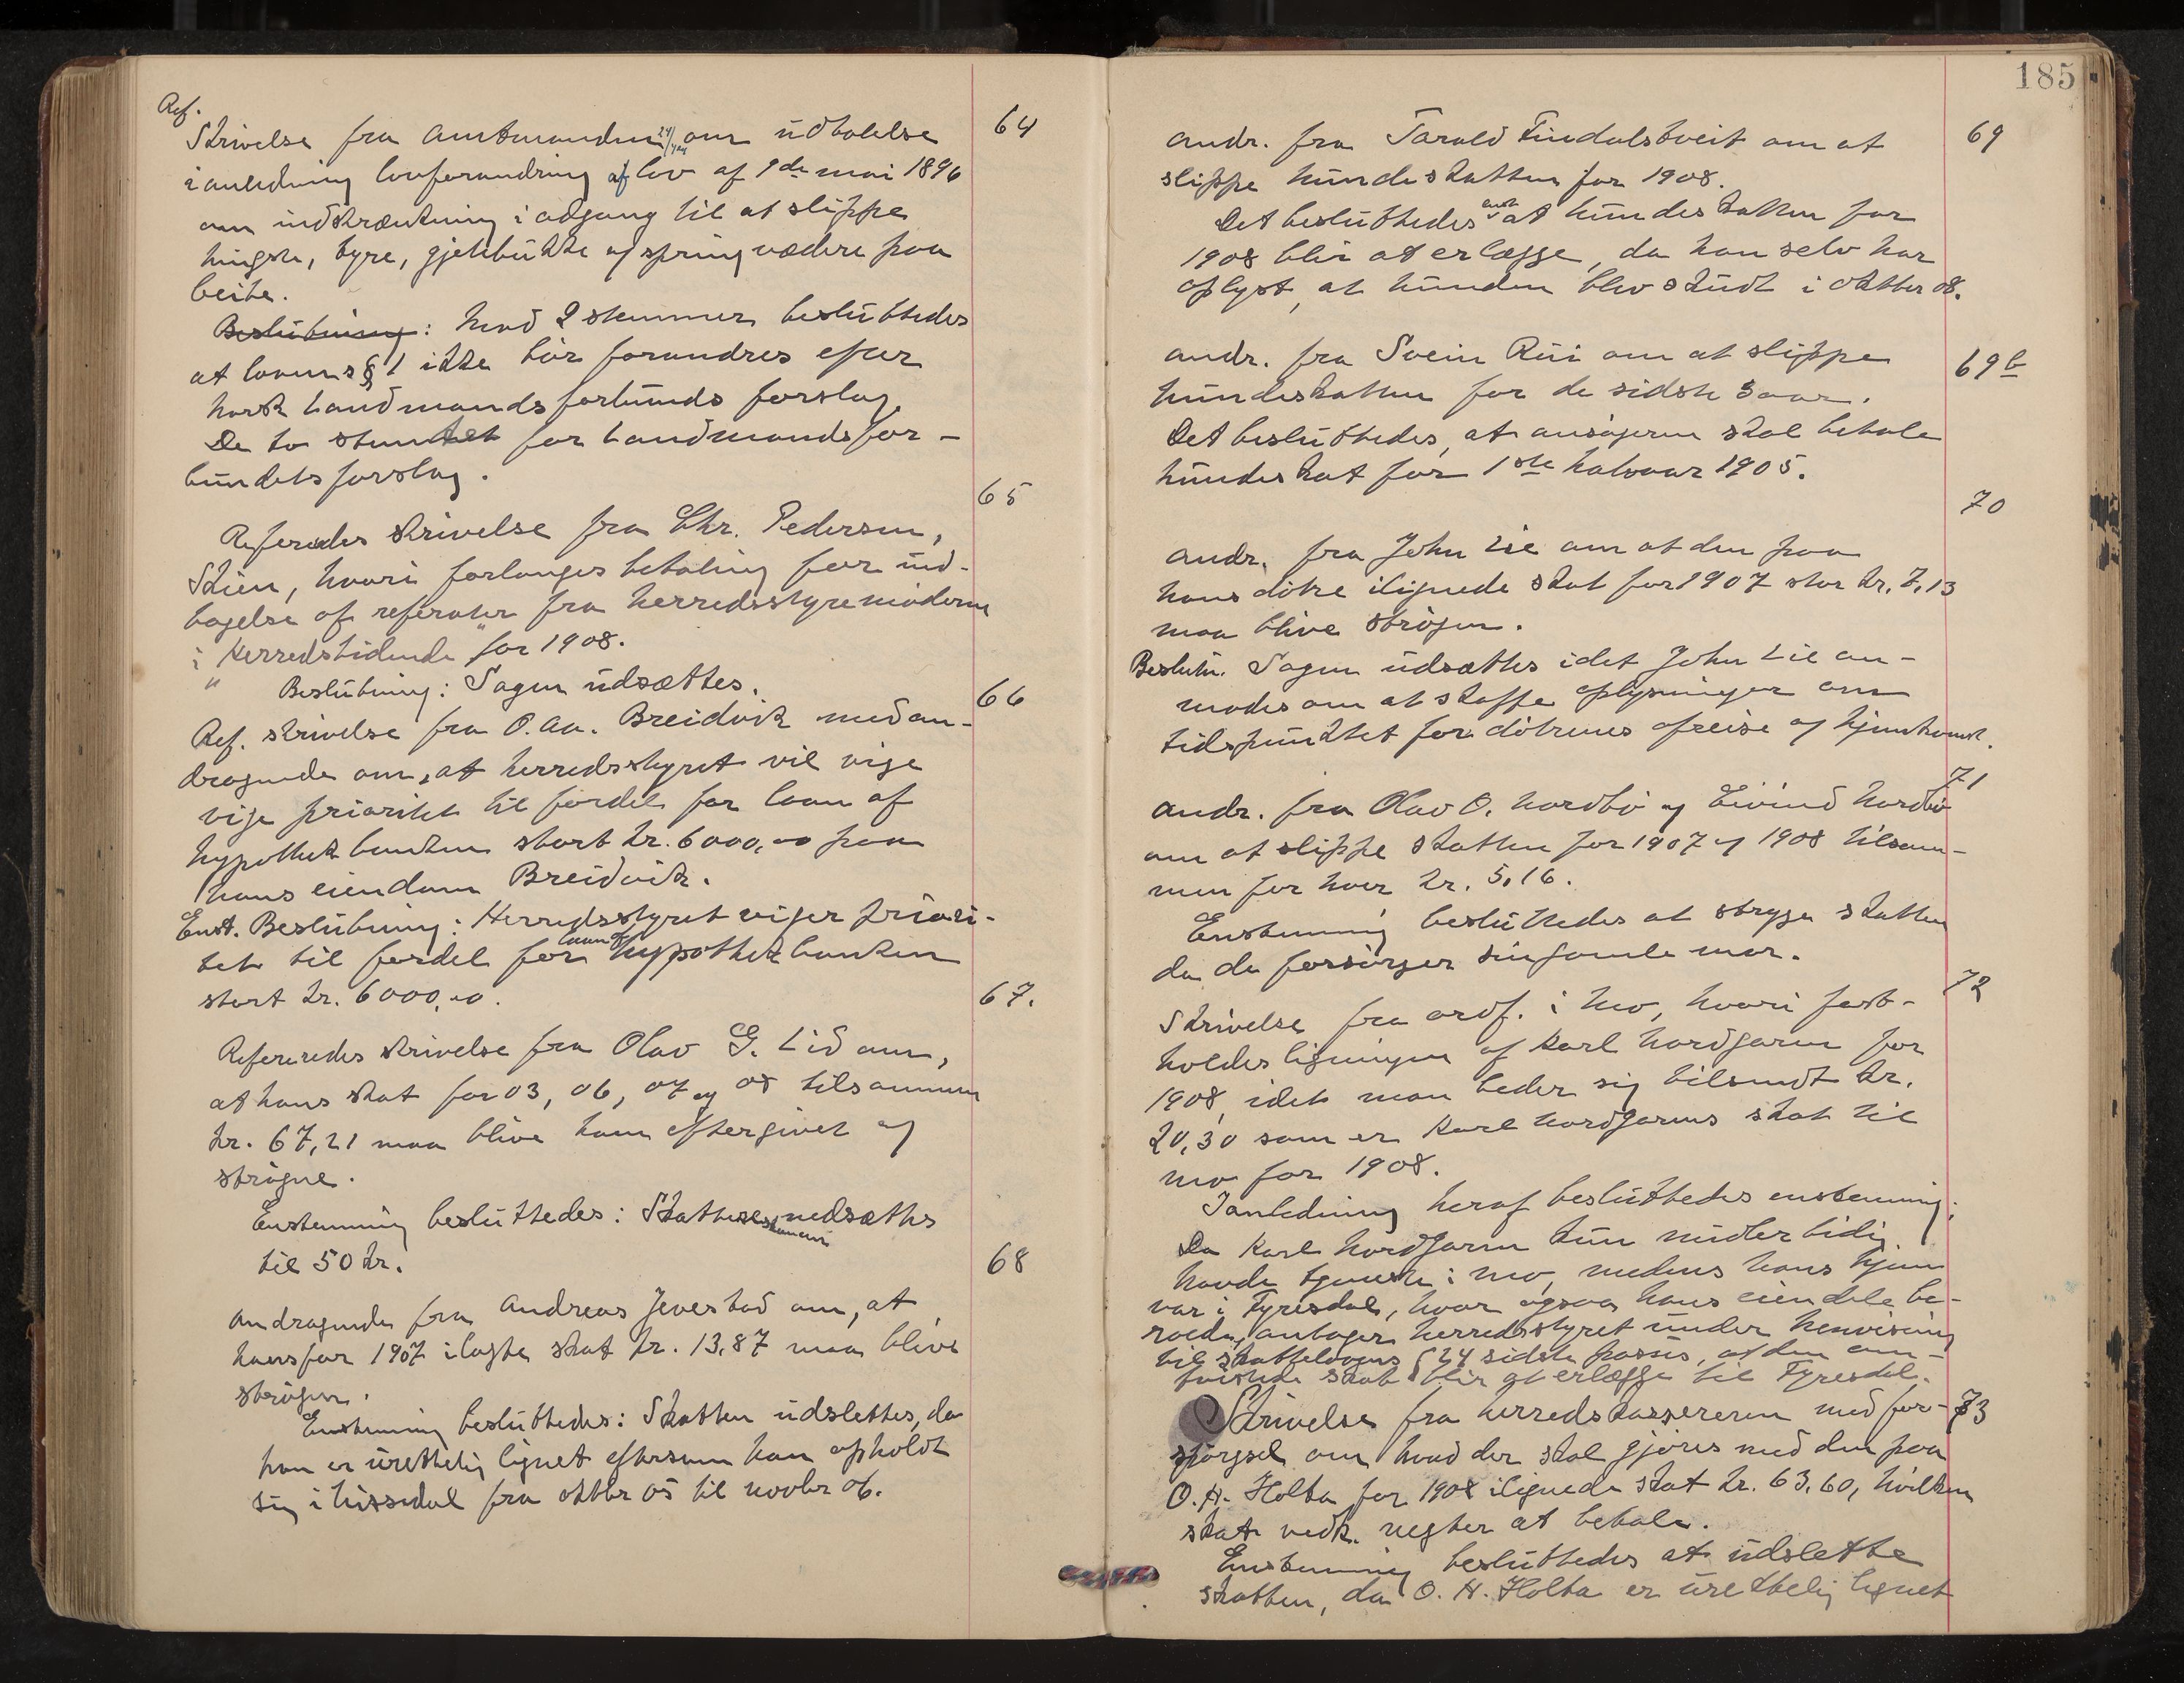 64
Ref.
Skrivelse fra amtmanden om udtalelse
i anledning lovforandring af lov af 9de mai 1896
om indskrænkning i adgang til at slippe
hingste, tyre, gjetebukke og springvædere paa
beite.
Beslutning: Mod 2 stemmer besluttedes
at lovens § 1 ikke bör forandres efter
norsk Landmandsforbunds forslag.
De to stemte for Landmandsfor-
bundets forslag.
65
Refereredes skrivelse fra Chr. Pedersen,
Skien, hvori forlanges betaling for ind-
tagelse af referater fra herredsstyremöderne
i "Herredstidende" for 1908.
Beslutning: Sagen udsættes.
66
Ref. skrivelse fra O. Aa. Breidvik med an-
dragende om, at herredsstyret vil vige
vige prioritet til fordel for laan af
hypothekbanken stort kr. 6000,00 paa
hans eiendom Breidvik.
Enst. Beslutning: Herredsstyret viger priori-
tet til fordel for laan af hypothekbanken
stort kr. 6000,00.
67.
Refereredes skrivelse fra Olav G. Lid om,
at hans skat for 03, 06, 07 og 08 tilsammen
kr. 67,21 maa blive ham eftergivet og
ströget.
Enstemmig besluttedes: Skatterestancen nedsættes
til 50 kr.
68
Andragende fra Andreas Jevestad om, at
hans for 1907 ilagte skat kr. 13,87 maa blive
strögen.
Enstemmig besluttedes: Skatten udslettes, da
han er urettelig lignet eftersom han opholdt
sig i Nissedal fra oktbr 05 til novbr 06.
185
69
Andr. fra Tarald Findalstveit om at
slippe hundeskatten for 1908.
Det besluttedes enst. at hundeskatten for
1908 blir at erlægge, da han selv har
oplyst, at hunden blev skudt i oktber 08.
69b
Andr. fra Svein Rui om at slippe
hundeskatten for de sidste 3 aar.
Det besluttedes, at ansögeren skal betale
hundeskat for 1ste halvaar 1905.
70
Andr. fra John Lie om at den paa
hans dötre ilignede skat for 1907 stor kr. 7,13
maa blive strögen.
Beslutn. Sagen udsættes idet John Lie an-
modes om at skaffe oplysninger om
tidspunktet for dötrenes afreise og hjemkomst.
71
Andr. fra Olav O. Nordbö og Eivind Nordbö
om at slippe skatten for 1907 og 1908 tilsam-
men for hver kr. 5,16.
Enstemmig besluttedes at stryge skatten
da de forsörger sin gamle mor.
72
Skrivelse fra ordf. i Mo, hvori fast-
holdes ligningen af Karl Nordgarden for
1908, idet man beder sig tilsendt kr.
20,30 som er Karl Nordgardens skat til
Mo for 1908.
I anledning heraf besluttedes enstemmig:
Da Karl Nordgarden kun midlertidig
havde tjeneste i Mo, medens hans hjem
var i Fyresdal, hvor ogsaa hans eiendele be-
roede, antager herredsstyret under henvisning
til skattelovens § 24 sidste passus, at den om-
tvistede skat blir at erlægge til Fyresdal.
73
Skrivelse fra herredskassereren med for-
spörgsel om hvad der skal gjöres med den paa
O. H. Holta for 1908 ilignede skat kr. 63,60, hvilken
skat vedk. negter at betale.
Enstemmig besluttedes at udslette
skatten, da O. H. Holta er urettelig lignet